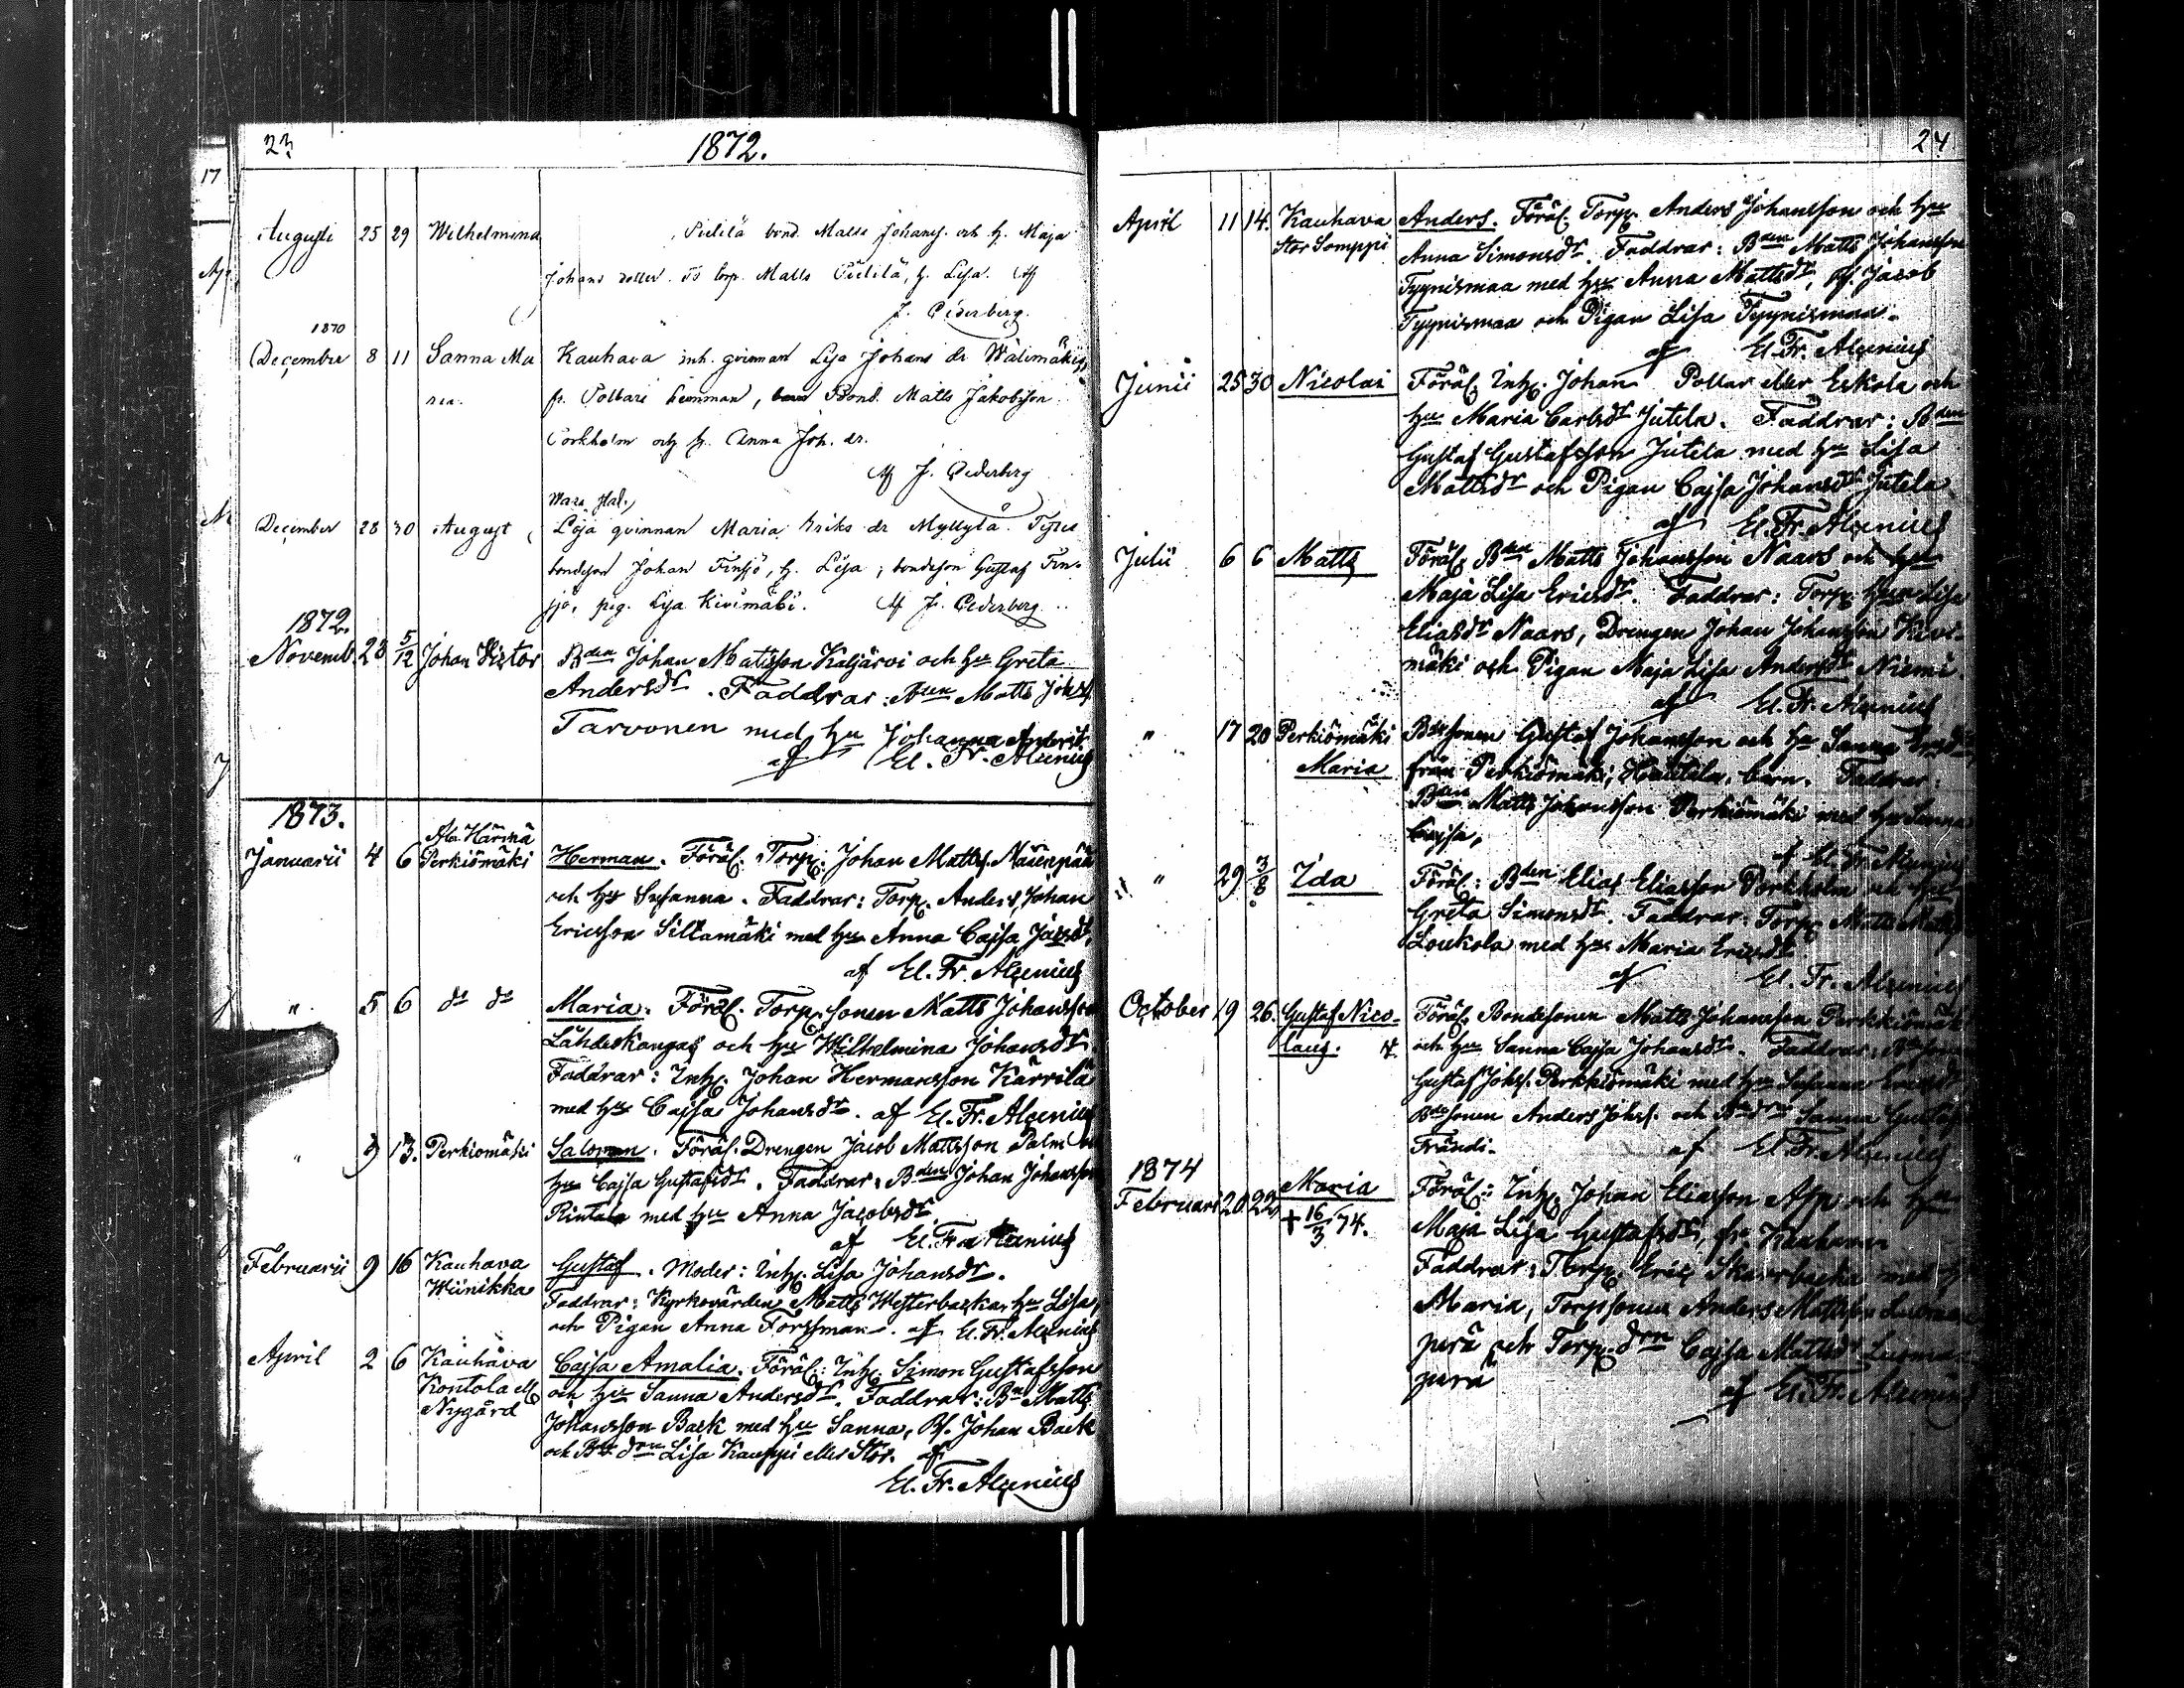 23 1872.
17
Augusti 25 29 Wilhelmina Pietilä bond. Matts Johans. och h. Maja
Johans dotter. Ts torp. Matts Pietilä, h. Lisa. Af
J. Cederberg.
1870
December 8 11 Sanna Ma Kauhava inh. qvinnan Lisa Johans dr Wälimäki,
ria. fr. Pollari hemman, Bond. Matts Jakobsson
och h. Anna Joh. dr.
Af J. Cederberg
December 28 30 August Lösa qvinnan Maria Eriks dr Myllylä.
bondeson Johan Finsjö, h. Lisa, bondeson Gustaf Fin-
sjö, pig. Lisa Kivimäki. Af J. Cederberg
1872.
Novemb. 28 5/12 Johan Victor Bden Johan Matsson Kaljärvi och hu Greta
Andersdr. Faddrar: Bden Matts Johs.
Tarvonen med hu Johanna Andersdr
af El. Fr. Alcenius
1873.
Januarii 4 6 Ala Härmä
Perkiömäki Herman. Föräl. Torp. Johan Matts. Näsenpää
och hu Susanna. Faddrar: Torp. Anders Johan
Ericsson Siltamäki med hu Anna Cajsa
af El. Fr. Alcenius
" 5 6 do do Maria. Föräl. Torp. sonen Matts Johansson
Lähdeskangas och hu Wilhelmina Johansdr.
Faddrar: Inh. Johan Hermansson Kärrilä
med hu Cajsa Johansdr. af El. Fr. Alcenius
" 9 13. Perkiomäki Salomon. Föräl. Drengen Jacob Mattsson Palm
hu Cajsa Gustafsdr. Faddrar: Bden Johan Johansson
Rintala med hu Anna Jacobsdr
af El. Fr. Alcenius
Februarii 9 16 Kauhava Gustaf. Moder: Inh. Lisa Johansdr.
Wiinikka Faddrar: Kyrkovärden Matts Westerbacka, hu Lisa,
och Pigan Anna Forssman. af El. Fr. Alcenius
April 2 6 Kauhava Cajsa Amalia. Föräl: Inh. Simon Gustafsson
Kontola ell. och hu Sanna Andersdr. Faddrar: Bn Matts
Nygård Johansson Back med hu Sanna, Bs. Johan Back
och Bde dren Lisa Kauppi eller Stor. af
El. Fr. Alcenius
24
April 11 14. Kauhava Anders. Föräl. Torp. Anders Johansson och hu
Stor Somppi Anna Simonsdr. Faddrar: Bden Matts Johansson
Tyynismaa med hu Anna Mattsdr, Bs. Jacob
Tyynismaa och Pigan Lisa Tyynismaa.
af El. Fr. Alcenius
Junii 25 30 Nicolai Föräl. Inh. Johan Pollar eller Eskola och
hu Maria Carlsdr Jutila. Faddrar: Bden
Gustaf Gustafsson Jutila med hu Lisa
Mattsdr och Pigan Cajsa Johansdr Jutila.
af El. Fr. Alcenius
Julii 6 6 Matts Föräl. Bden Matts Johansson Naars och hu
Maja Lisa Ericsdr. Faddrar: Torp. hun Lisa
Eliasdr Naars, Drengen Johan Johansson Kivi-
mäki och Pigan Maja Lisa Andersdr Niemi.
af El. Fr. Alcenius
" 17 20 Perkiömäki Bdesonen Gustaf Johansson och hu Sanna
Maria från Perkiömäki, barn. Faddrar:
Bden Matts Johansson Perkiömäki med hu Sanna
Cajsa,
af El. Fr. Alcenius
" 29 3/8 Ida Föräl: Bden Elias Eliasson Porkholm och hu
Greta Simonsdr. Faddrar: Torp. Matts
Loukola med hu Maria Ericsdr.
af El. Fr. Alcenius
October 19 26. Gustaf Nico- Föräl. Bondesonen Matts Johansson Perkkiömäki
laus. och hu Sanna Cajsa Johansdr. Faddrar:
Gustaf Johs. Perkkiömäki med hu Susanna Ericsdr
Bdesonen Anders Johs. och Sanna
Frändi. af El. Fr. Alcenius
1874
Februari 20 22 Maria Föräl: Inh. Johan Eliasson Asp och hu
+ 16/3 74. Maja Lisa Gustafsdr, fr. Kauhava
Faddrar: Torp. Eric Skarrbacka med h.
Maria, Torpsonen Anders Mattsson
perä och Torp. dren Cajsa Mattsdr
perä
af El. Fr. Alcenius